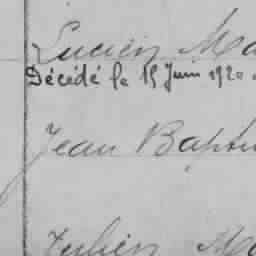 Lucien Ma
Décédé le 15 Juin 1920
Jean Baptis
Julien Ma